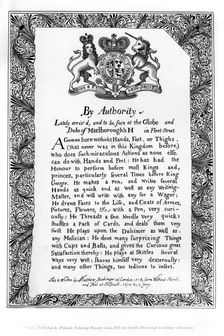 By Authority
Lately arriv'd, and to be seen at the Globe and
Duke of Marlborough's H in Fleet street
A German born without Hands, Feet, or Thighs,
(that never was in this Kingdom before)
who does such miraculous Actions as none else
can do with Hands and Feet: He has had the
Honour to perform before most Kings and
princes, particularly several Times before King
George. He makes a Pen, and writes several
Hands as quick and as well as any Writing-
Master, and will write with any for a Wager;
He draws Faces to the Life, and Coats of Armes,
Pictures, Flowers, &c, with a Pen, very curi-
ously; He Threads a fine Needle very quick;
shuffles a Pack of Cards, and deals them very
swift. He plays upon the Dulcimer as well as
any Musician; He does many surprizing Things
with Cups and Balls, and gives the Curious great
Satisfaction thereby; He plays at Skittles several
Ways very well; shaves himself very dexterously;
and many other Things, too tedious to infert.